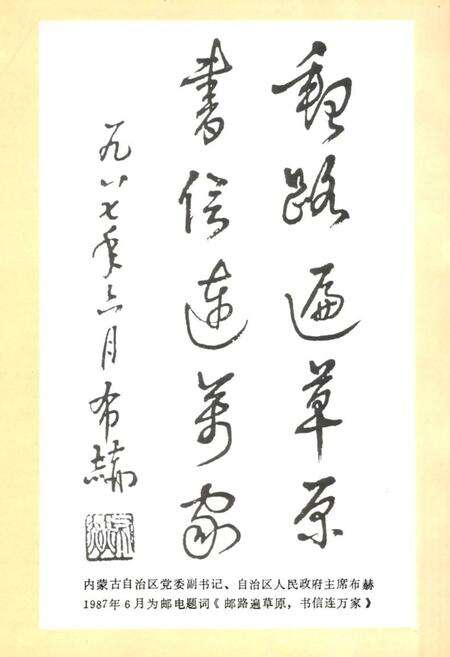 郵路遍草原
書信連萬家
一九八七年六月布赫
内蒙古自治区党委副书记、自治区人民政府主席布赫
1987年6月为邮电题词《邮路遍草原，书信连万家》